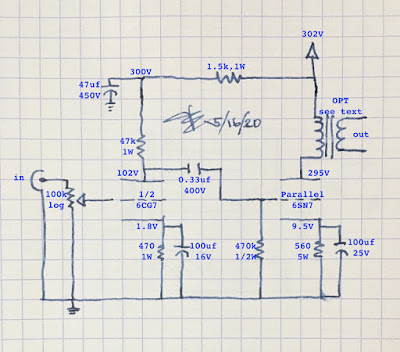 302V
300V
1.5k,1W
47uf
450V
OPT
see text
out
5/16/20
47k
1W
102V
0.33uf
400V
295V
in
100k
log
1/2
6CG7
Parallel
6SN7
1.8V
9.5V
470
1W
100uf
16V
470k
1/2W
560
5W
100uf
25V